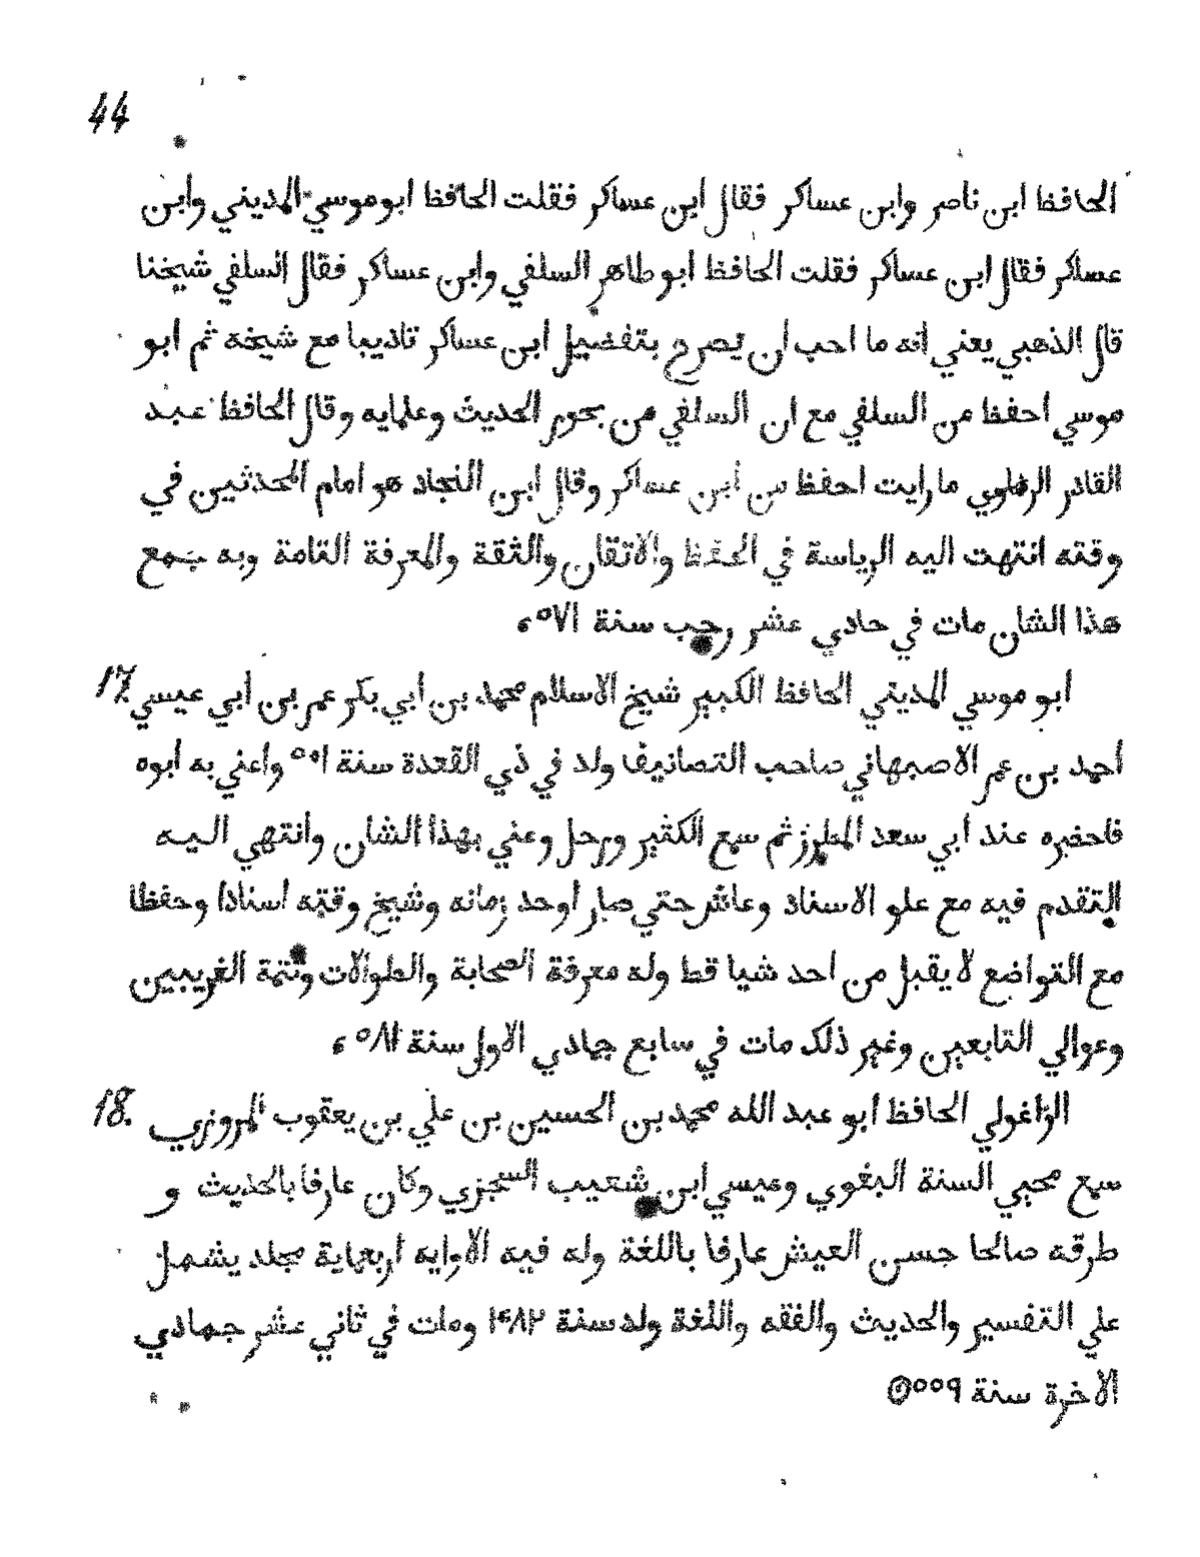 44
الحافظ ابن ناصر وابن عساكر فقال ابن عساكر فقلت الحافظ ابو موسي المديني وابن
عساكر فقال ابن عساكر فقلت الحافظ ابو طاهر السلفي وابن عساكر فقال السلفي شيخنا
قال الذهبي يعني انه ما احب ان يصرح بتفضيل ابن عساكر تاديبا مع شيخه ثم ابو
موسي احفظ من السلفي مع ان السلفي من بحور الحديث وعلمايه وقال الحافظ عبد
القادر الرهاوي ما رايت احفظ من ابن عساكر وقال ابن النجاد هو امام المحدثين في
وقته انتهت اليه الرياسة في الحفظ والاتقان والثقة والمعرفة التامة وبه ختم
هذا الشان مات في حادي عشر رجب سنة ٥٧١
17. ابو موسي المديني الحافظ الكبير شيخ الاسلام محمد بن ابي بكر عمر بن ابي عيسي
احمد بن عمر الاصبهاني صاحب التصانيف ولد في ذي القعدة سنة ٥٠١ واعني به ابوه
فاحضره عند ابي سعد المطرز ثم سمع الكثير ورحل وعني بهذا الشان وانتهي اليه
التقدم فيه مع علو الاسناد وعاش حتي صار اوحد زمانه وشيخ وقته اسنادا وحفظا
مع التواضع لا يقبل من احد شيا قط وله معرفة الصحابة والطوالات وتتمة الغريبين
وعوالي التابعين وغير ذلك مات في سابع جمادي الاول سنة ٥٨١
18. الزاغولي الحافظ ابو عبد الله محمد بن الحسين بن علي بن يعقوب المروزي
سمع محيي السنة البغوي وعيسي ابن شعيب السجزي وكان عارفا بالحديث و
طرقه صالحا حسن العيش عارفا باللغة وله فيه الاوايه اربعماية مجلد يشمل
علي التفسير والحديث والفقه واللغة ولد سنة ٤٨٢ ومات في ثاني عشر جمادي
الاخرة سنة ٥٥٩